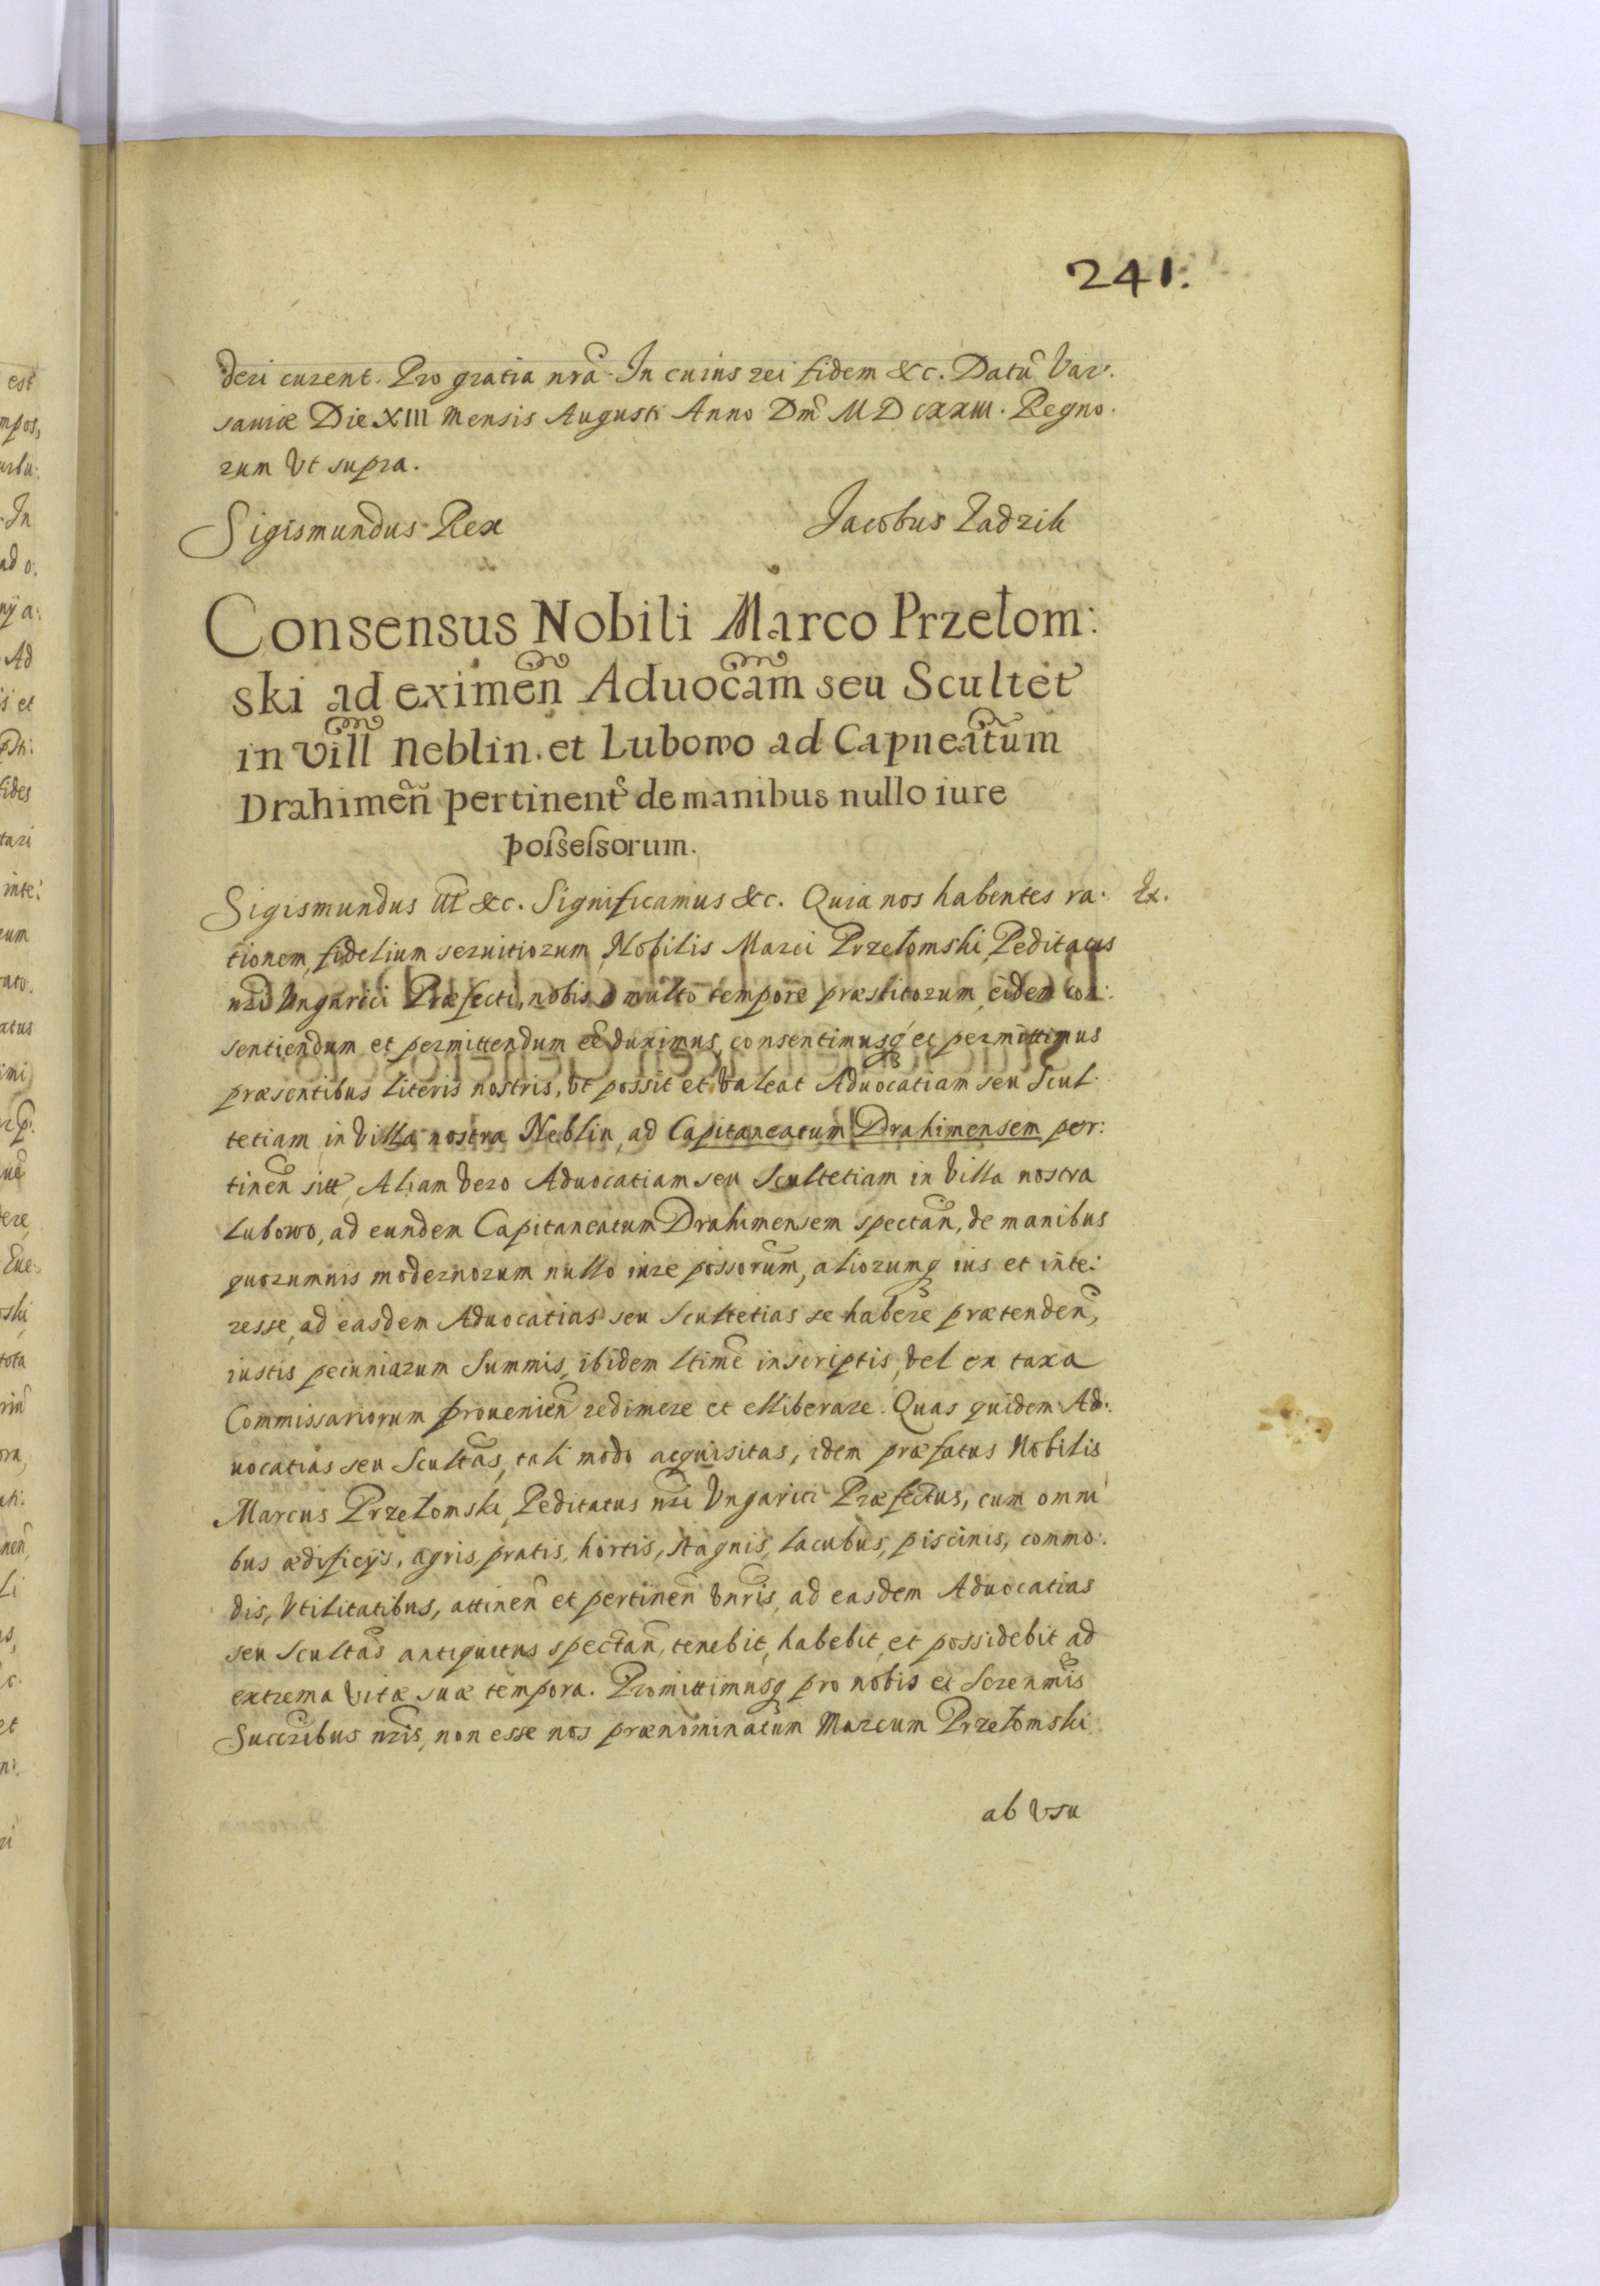 241.
deri curent. Pro gratia nrã. In cuius rei fidem &c. Datũ Var.
saviæ Die XIII mensis Augusti Anno Dm̃ MDCXXIII. Regno.
rum Vt supra.
Sigismundus Rex Jacobus Zadzik
Consensus Nobili Marco Przełom:
ski ad eximeñ Aduocãm seu Scultet
in Vill Neblin. et Lubowo ad Capneãtum
Drahimeñ pertinent de manibus nullo iure
poſseſsorum.
Sigismundus Ut &c. Significamus &c. Quia nos habentes ra. Ex.
tionem, fidelium seruitiorum, Nobilis Marci Przełomski, Peditatus
nri Vngarici Præfecti, nobis a multo tempore præstitorum, eidem con:
sentiendum et permittendum eẽ duximus, consentimusq et permittimus
præsentibus literis nostris, Vt possit et Valeat Aduocatiam seu Scul.
tetiam in Villa nostra Neblin, ad Capitaneatum Drahimensem per:
tineñ sitt, Aliam Vero Aduocatiam seu Scultetiam in Villa nostra
Lubowo, ad eundem Capitaneatum Drahimensem spectañ, de manibus
quorumuis modernorum nullo iure possorum, aliorumq ius et inte:
resse, ad easdem Aduocatias seu Scultetias se habere prætendeñ,
iustis pecuniarum Summis, ibidem ltimẽ inscriptis, Vel ex taxa
Commissariorum proueniẽn redimere et elliberare. Quas quidem Ad:
uocatias seu Scultãs, tali modo acquisitas, idem præfatus Nobilis
Marcus Przełomski, Peditatus nri Vngarici Præfectus, cum omni
bus ædificijs, agris, pratis, hortis, stagnis, lacubus, piscinis, commo:
dis, Vtilitatibus, attineñ et pertineñ Vnris, ad easdem Aduocatias
seu Scultãs antiquitus spectañ, tenebit, habebit, et possidebit ad
extrema Vitæ suæ tempora. Promittimusq pro nobis et Serenmis
Succribus nris, non esse nos prænominatum Marcum Przełomski
ab Vsu